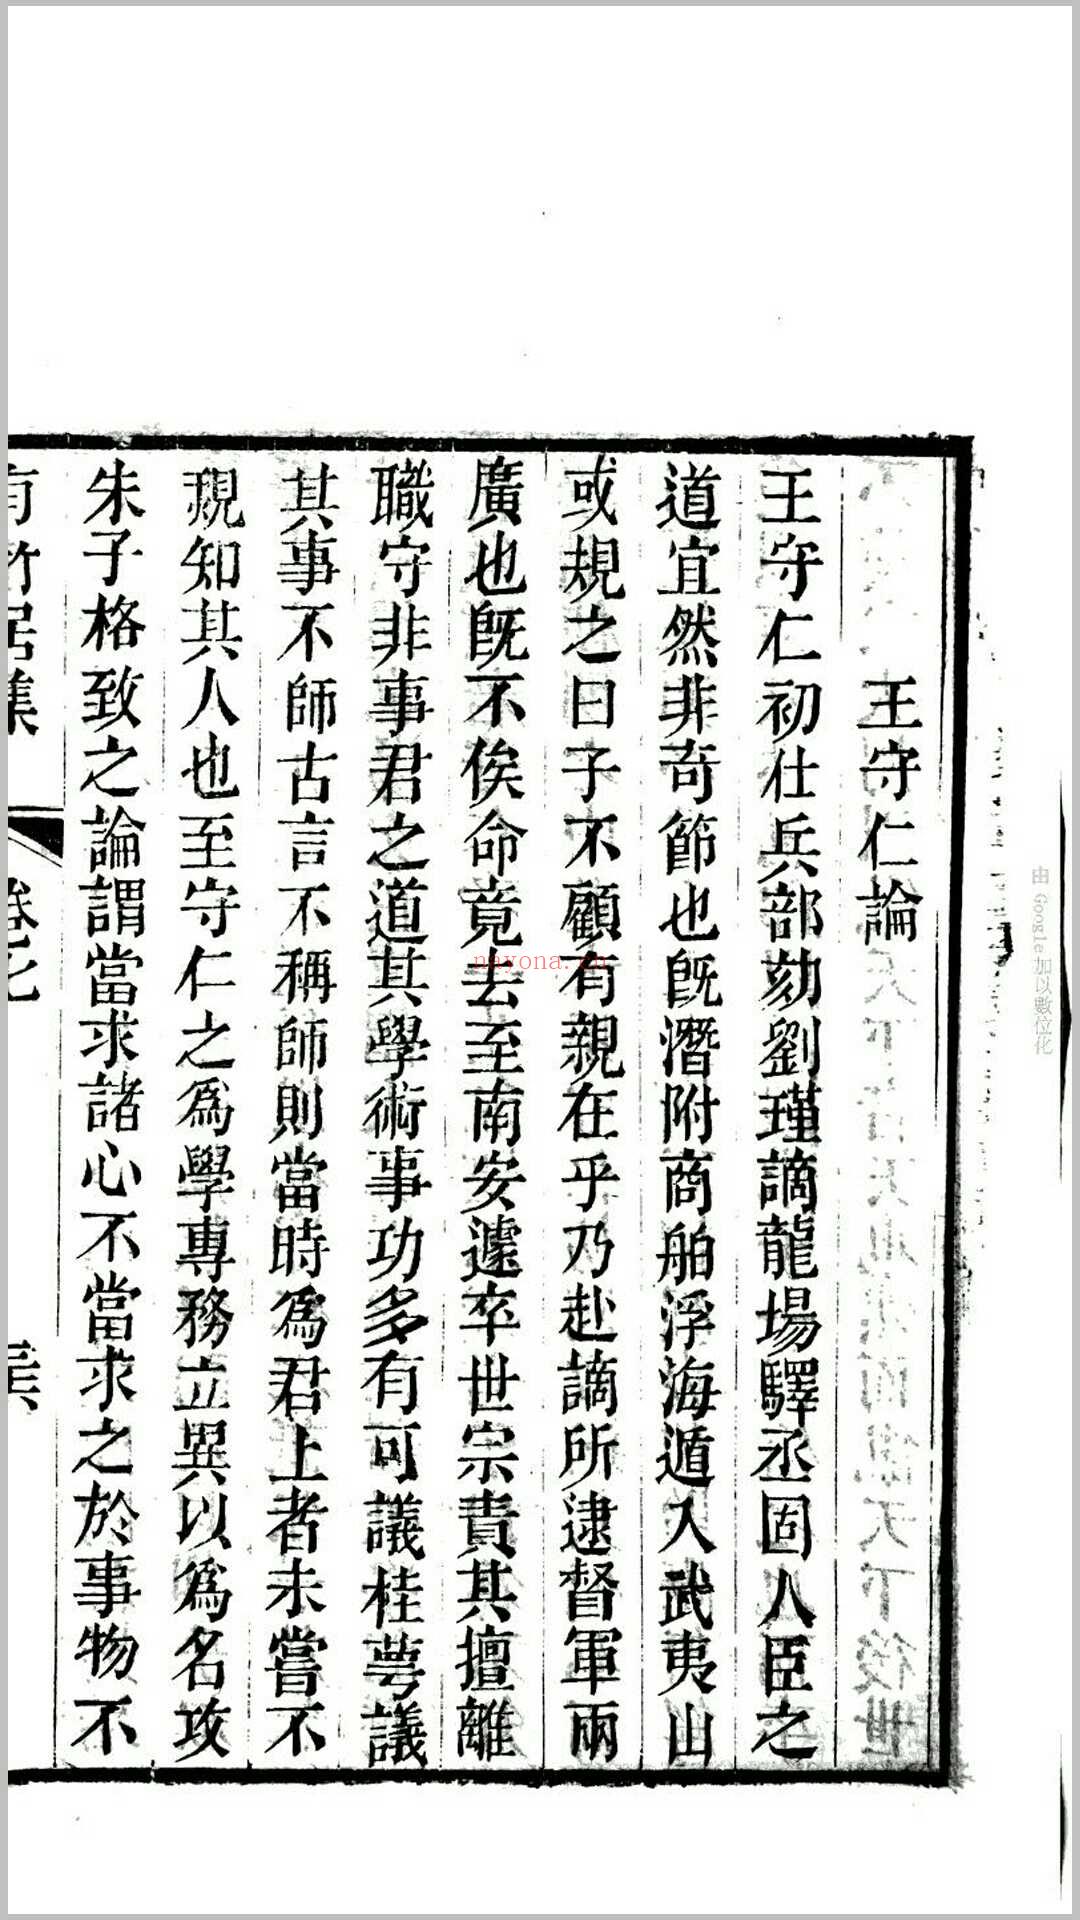 王守仁論
王守仁初仕兵部劾劉瑾謫龍場驛丞固人臣之
道宜然非奇節也旣潛附商舶浮海遁入武夷山
或規之曰子不顧有親在乎乃赴謫所逮督軍兩
廣也旣不俟命竟去至南安遽卒世宗責其擅離
職守非事君之道其學術事功多有可議桂萼議
其事不師古言不稱師則當時爲君上者未嘗不
覘知其人也至守仁之爲學專務立異以爲名攻
朱子格致之論謂當求諸心不當求之於事物不
有竹居集
卷七
nayona.cn
由 Google 加以數位化